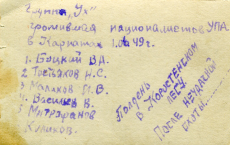 Группа "Ух"
громившая националистов УПА
в Карпатах 1.06 49г.
1. Боцкий В.Д.
2 Третьяков Н.С.
3 Маликов П.В.
4 Васильев В.
5 Митрофанов
Куликов.
Полдень
в Коростенском
лесу
после неудачной
охоты...